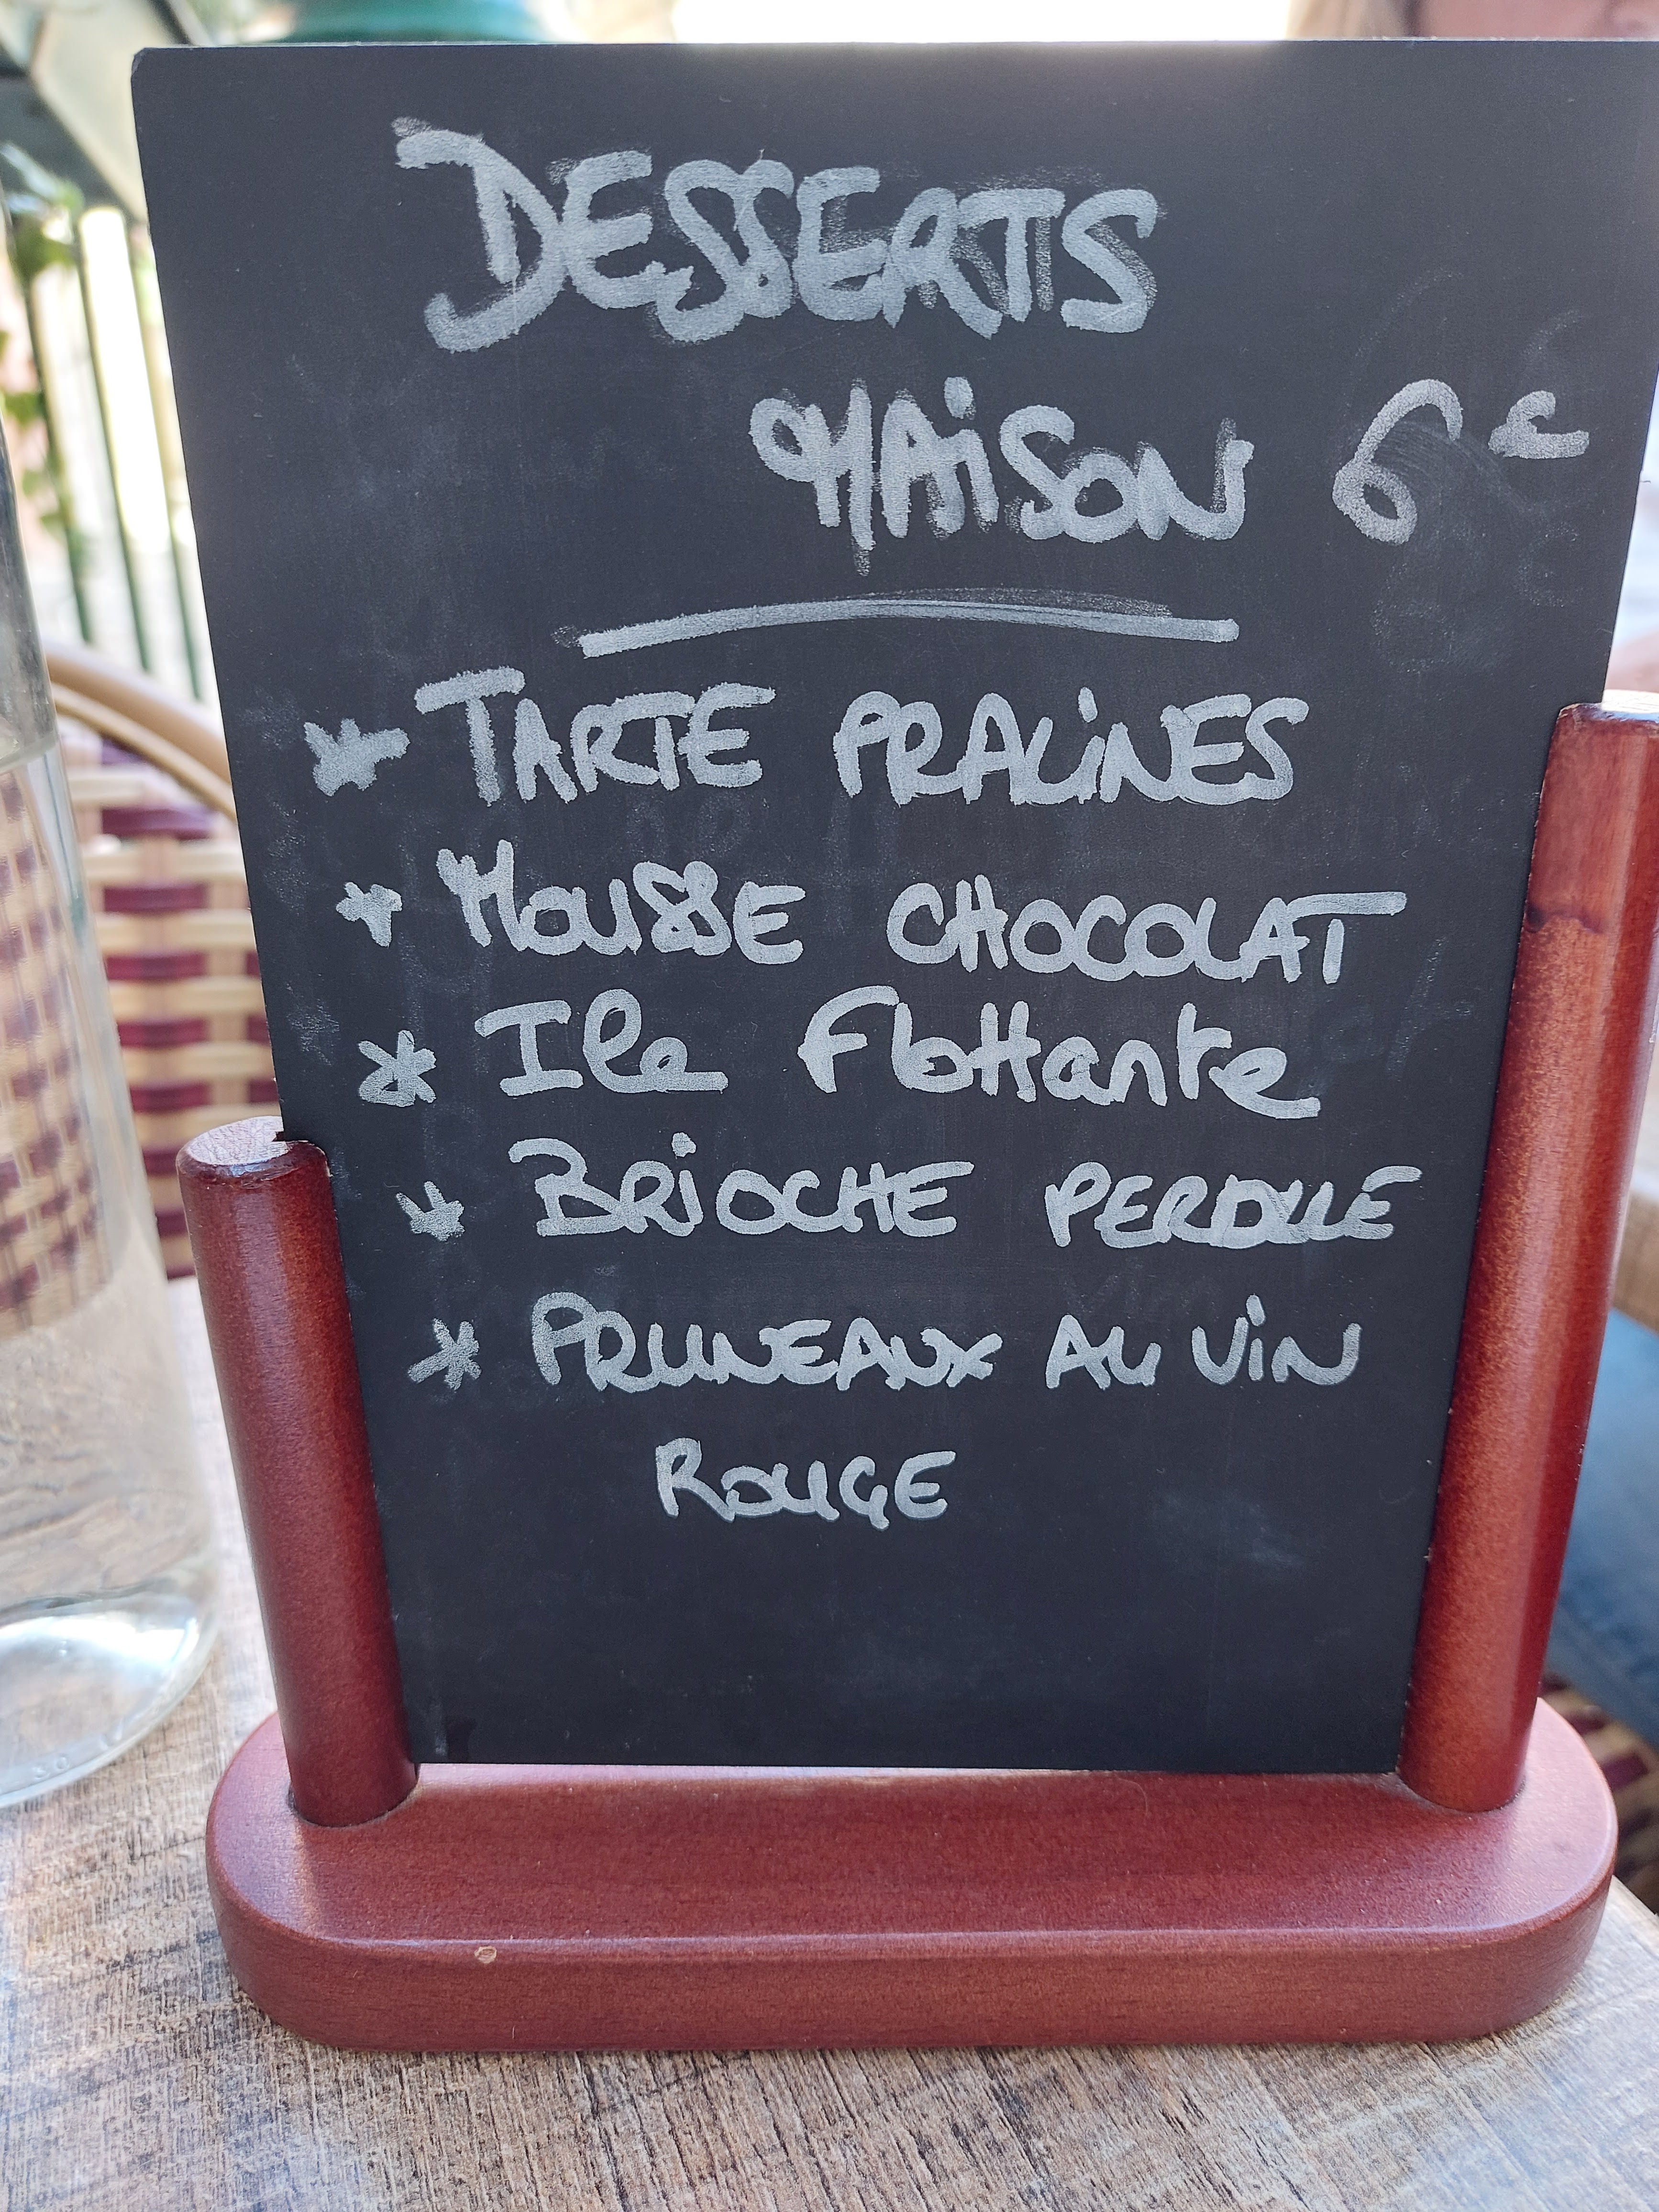 DESSERTS
MAiSON 6€
* TARTE PRALiNES
* MOUSSE CHOCOLAT
* Ile Flottante
* BRiOCHE PERDUE
* PRUNEAUX AU ViN
ROUGE